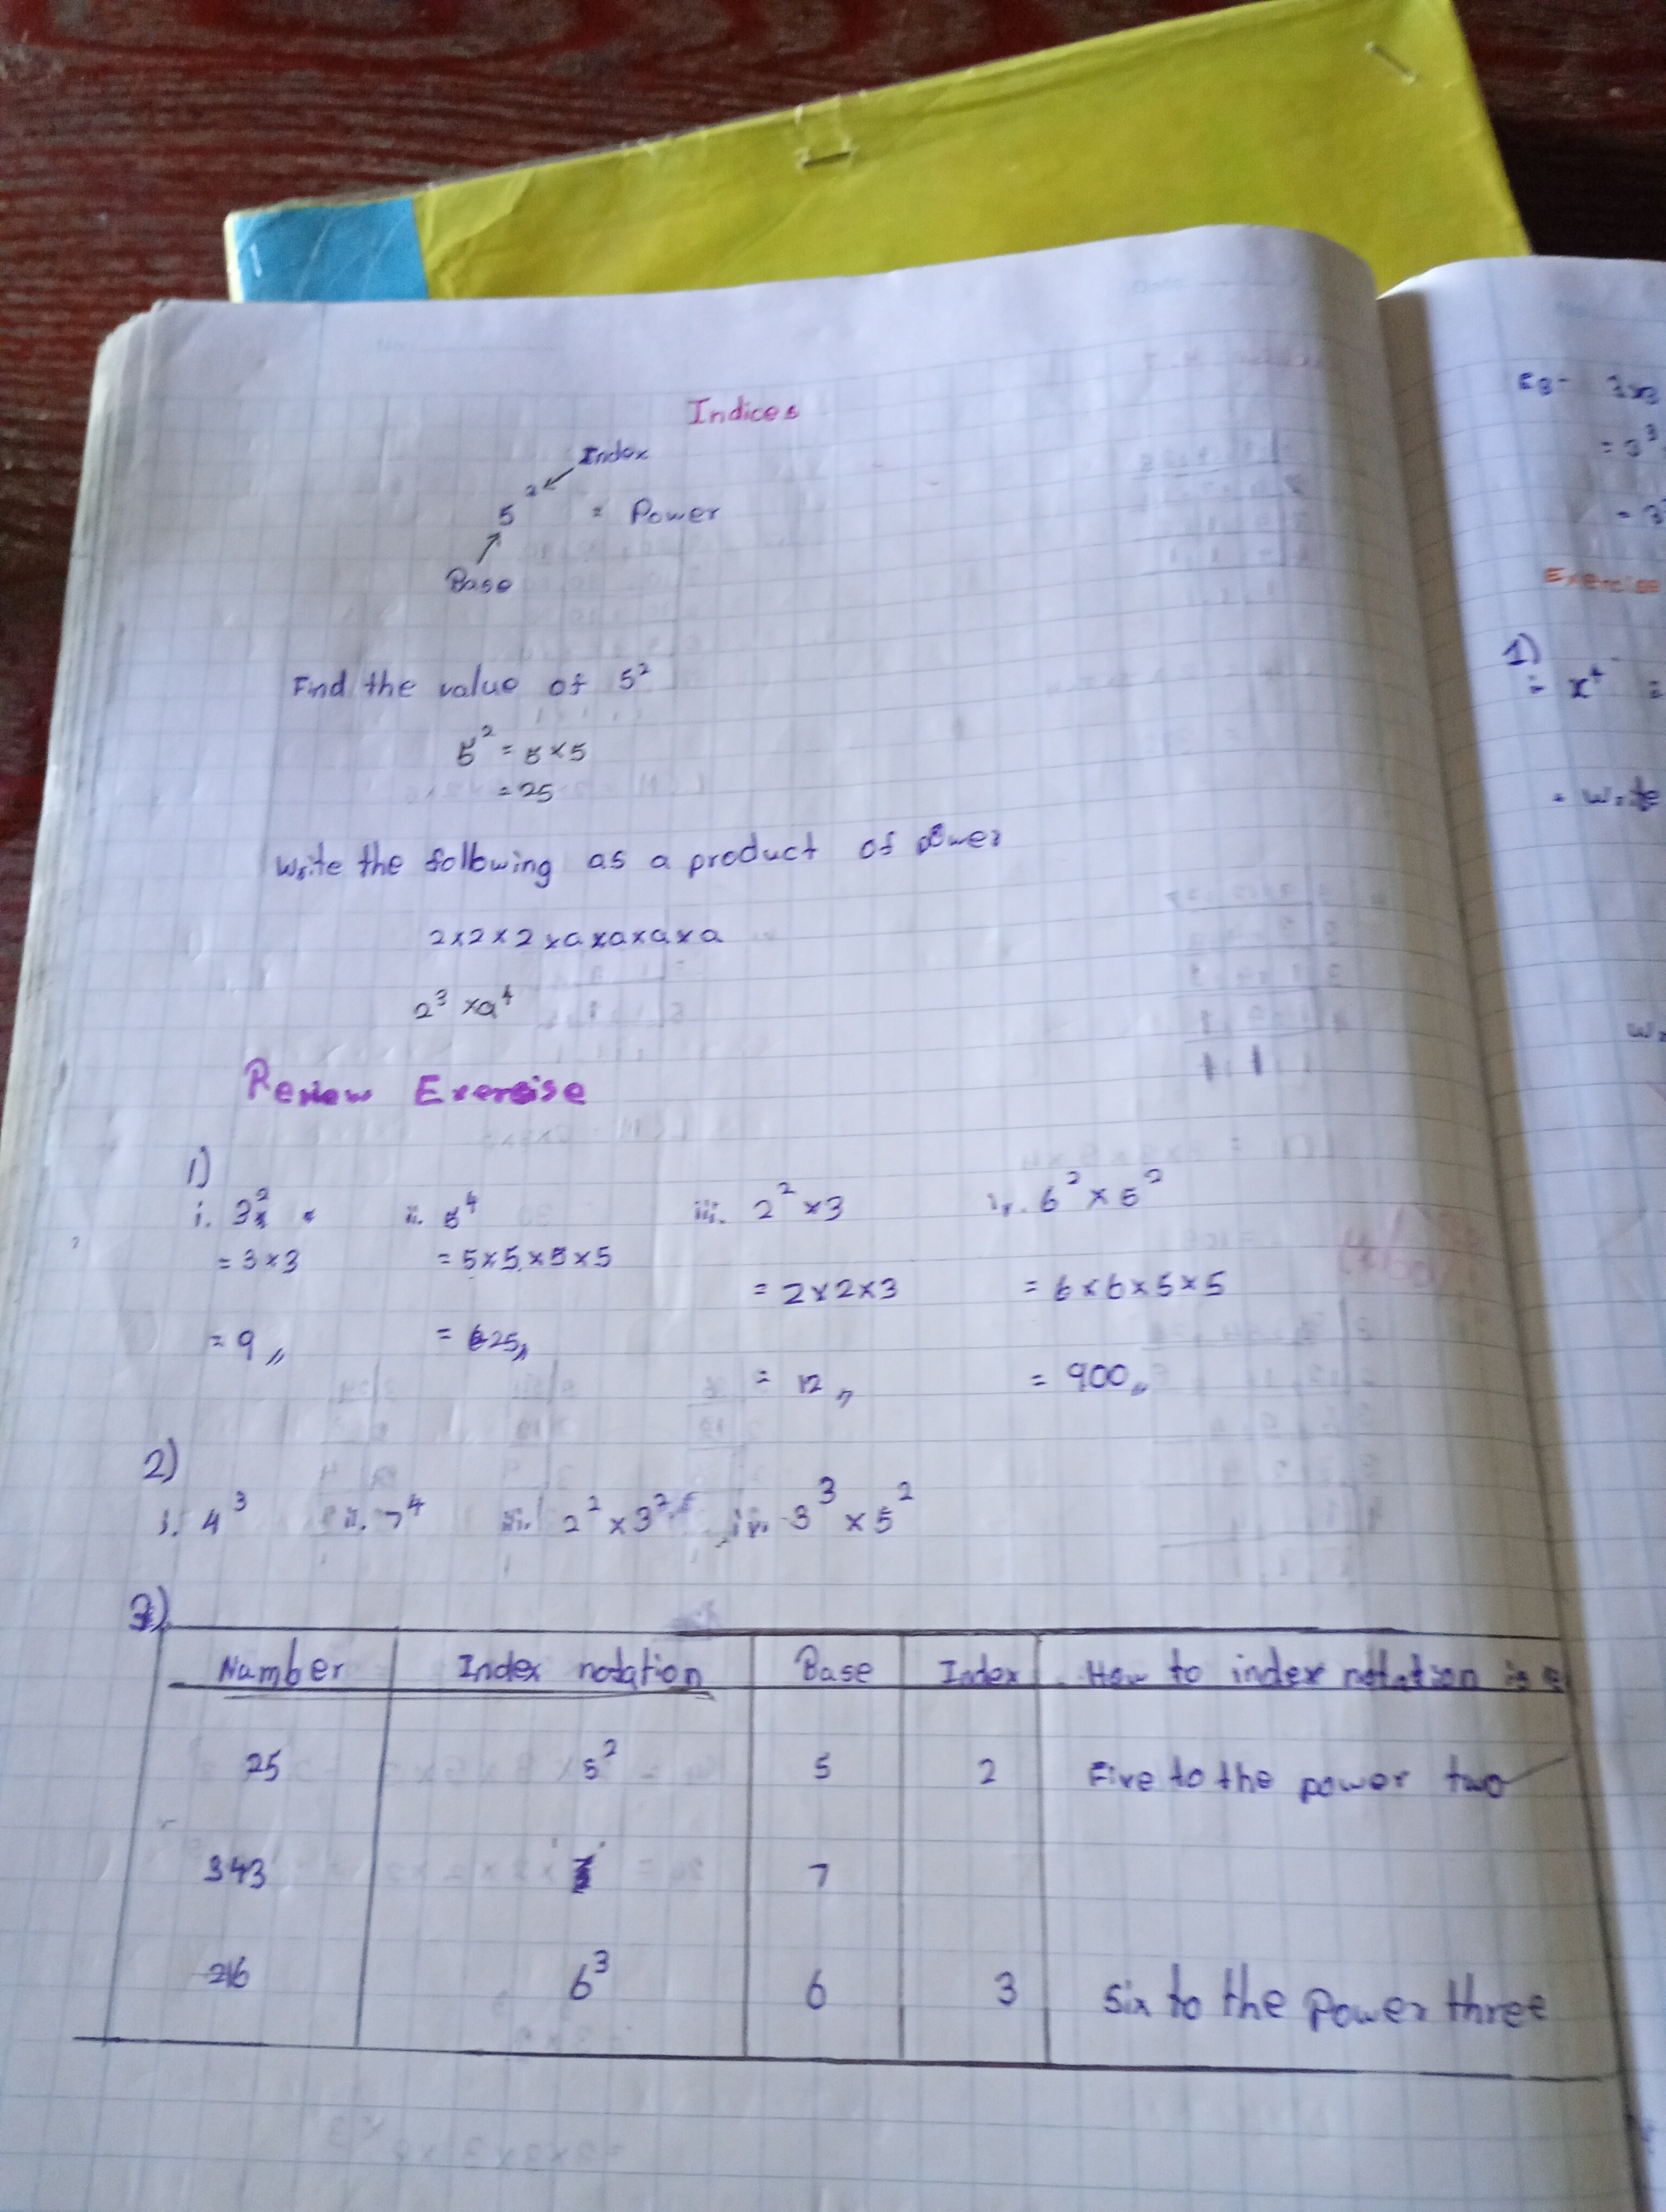 Indices
Index
5² = Power
Base
Find the value of 5²
5² = 5×5
= 25
Write the following as a product of power
2×2×2×a×a×a×a
2³ ×a⁴
Review Exercise
1)
i. 3² ii. 5⁴ iii. 2² ×3 iv. 6² × 5²
= 3×3 = 5×5×5×5 = 2×2×3 = 6×6×5×5
= 9,, = 625,, = 12,, = 900,,
2)
i. 4³ ii. 7⁴ iii. 2² ×3² iv. 3³ × 5²
3)
Number Index notation Base Index How to index notation is
25 5² 5 2 Five to the power two
343 7
216 6³ 6 3 Six to the Power three
Eg-
= 3³
Exercise
1)
x⁴ =
Write